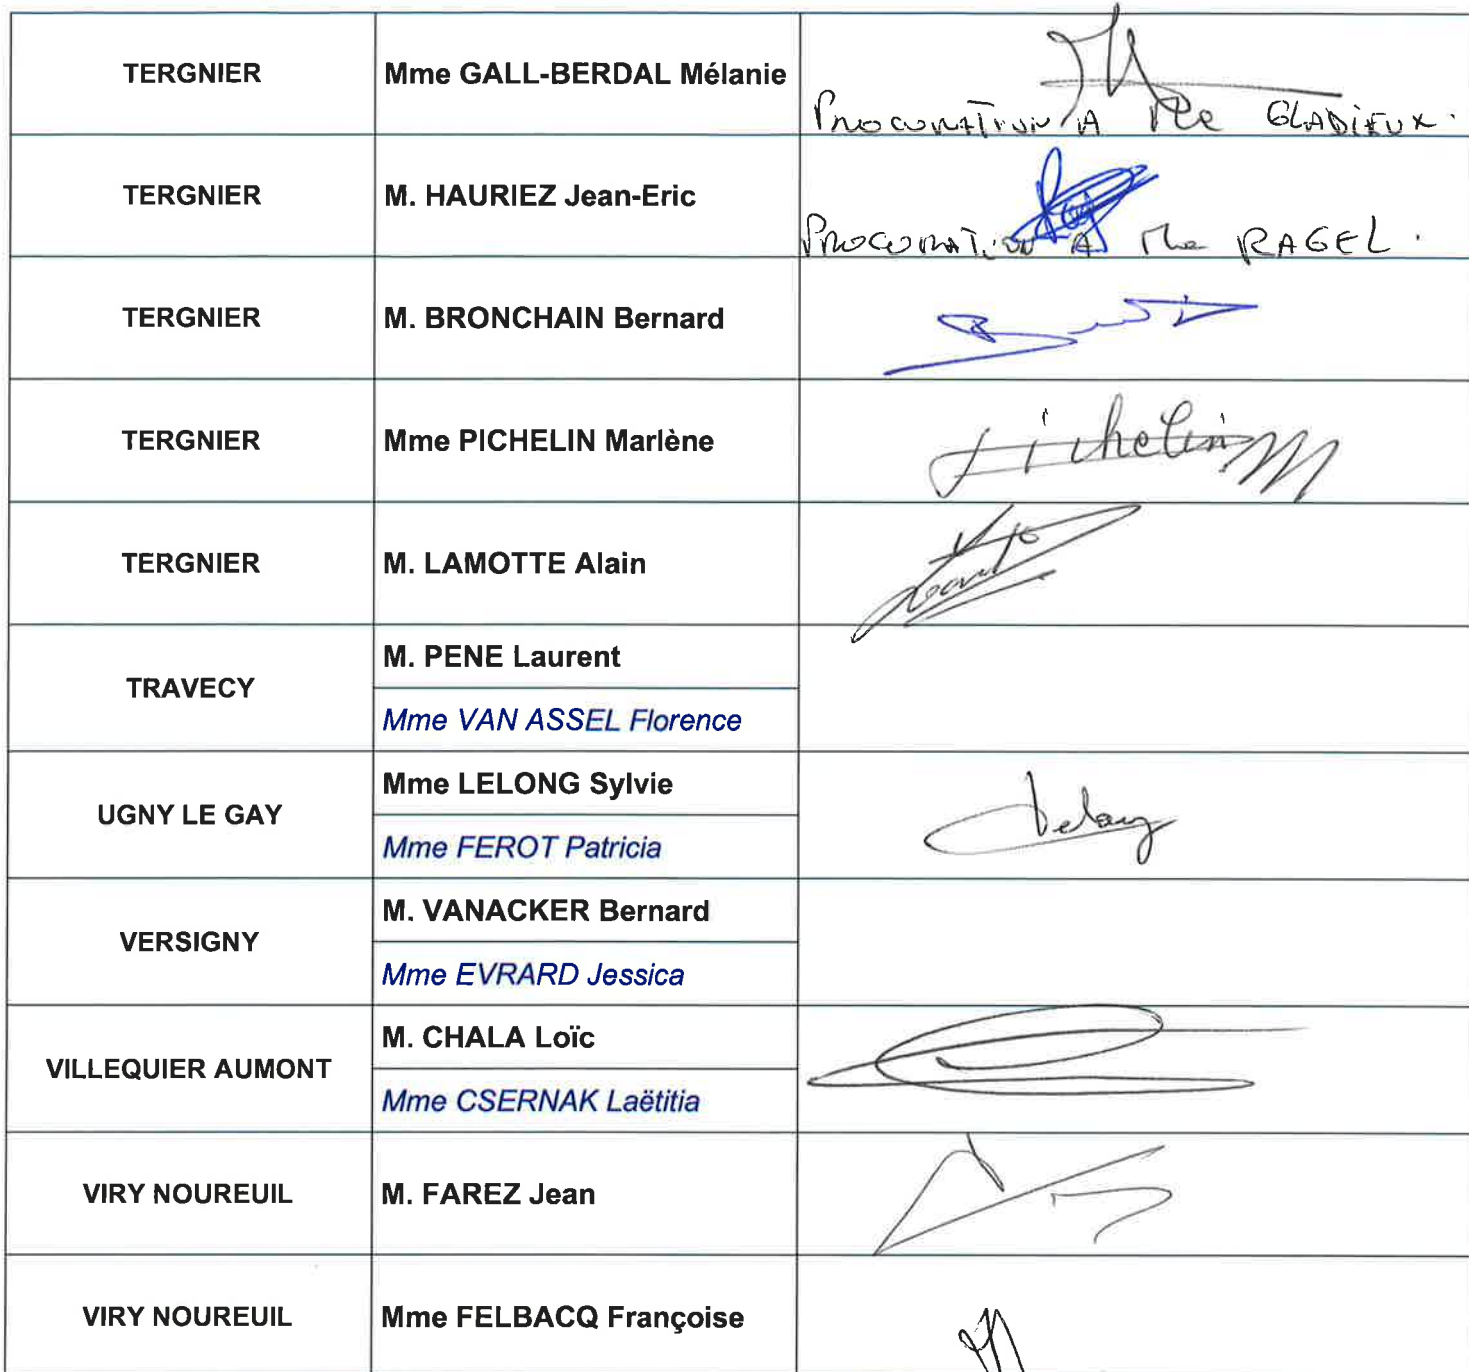 TERGNIER
Mme GALL-BERDAL Mélanie
PROCURATION A Mme GLADIEUX.
TERGNIER
M. HAURIEZ Jean-Eric
PROCURATION A Mme RAGEL.
TERGNIER
M. BRONCHAIN Bernard
TERGNIER
Mme PICHELIN Marlène
Pichelin M
TERGNIER
M. LAMOTTE Alain
TRAVECY
M. PENE Laurent
Mme VAN ASSEL Florence
UGNY LE GAY
Mme LELONG Sylvie
Mme FEROT Patricia
VERSIGNY
M. VANACKER Bernard
Mme EVRARD Jessica
VILLEQUIER AUMONT
M. CHALA Loïc
Mme CSERNAK Laëtitia
VIRY NOUREUIL
M. FAREZ Jean
VIRY NOUREUIL
Mme FELBACQ Françoise